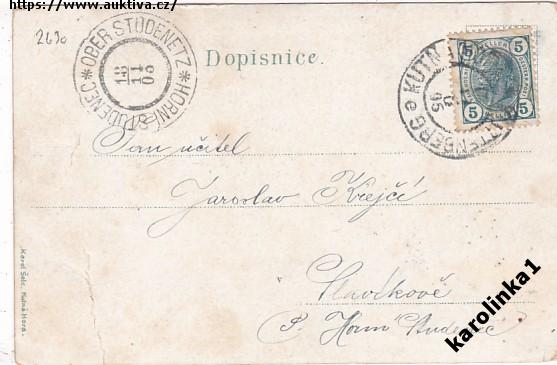 https://www.auktiva.cz/
2690
*OBER STUDENETZ*HORNÍ STUDENEC
18
11
05
Dopisnice.
5 HELLER 5
5 5
KUTN
TTENBERG e
Pan učitel
Jaroslav Krejčí
Slavíkově
P. Horní Studenec
Karel Šolc, Kutná Hora.
karolinka1